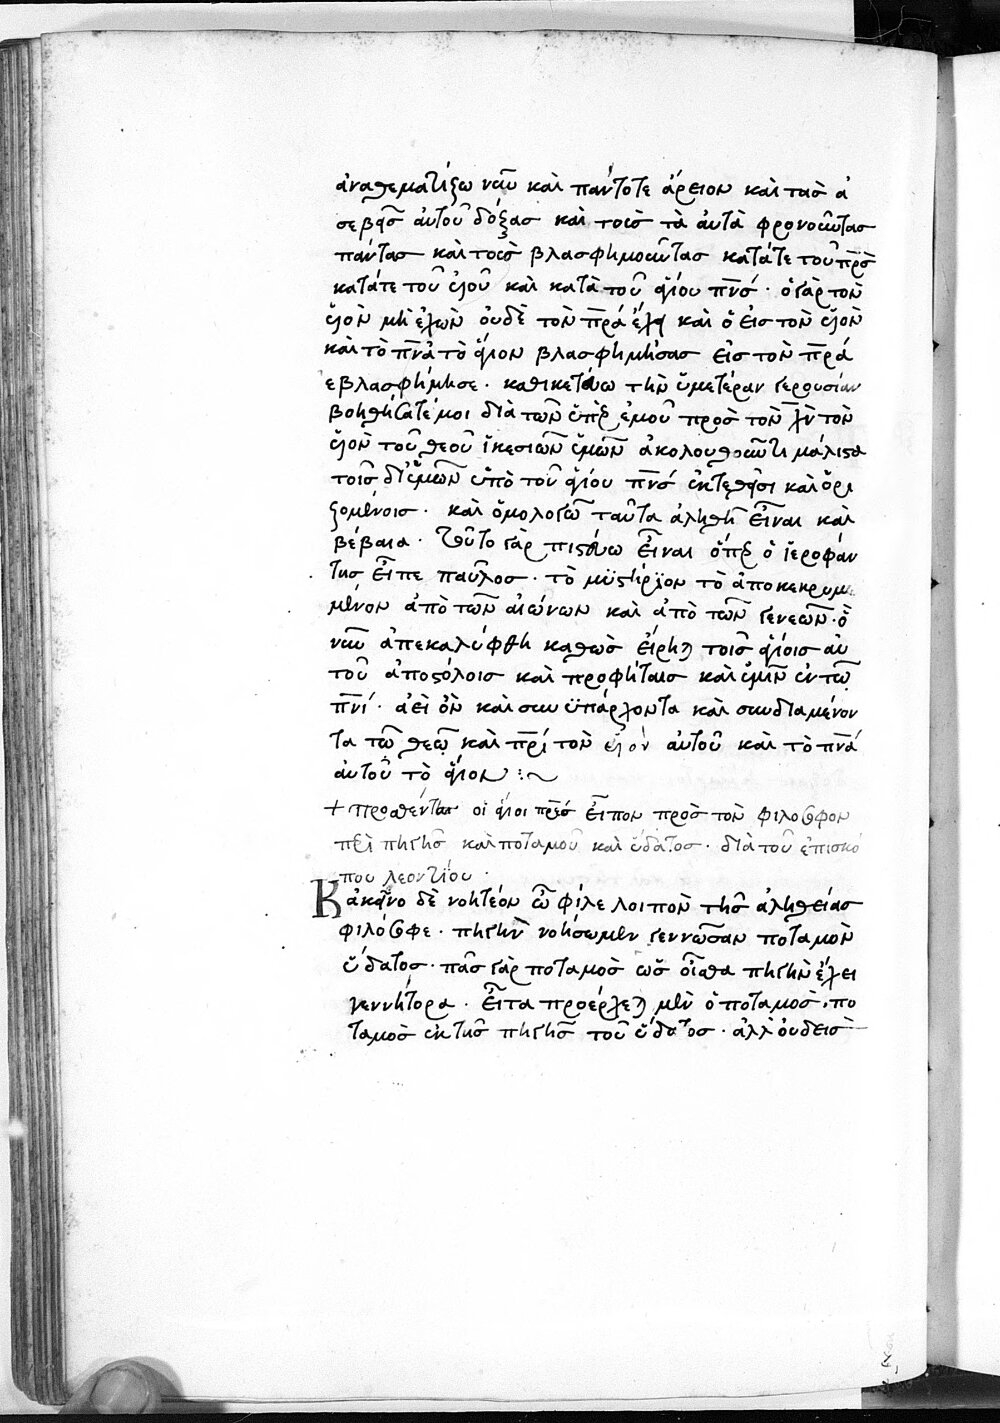 ἀναθεματίζω νῦν καὶ πάντοτε ἄρειον καὶ τὰσ ἀ
σεβεῖσ ἀυτοῦ δόξασ καὶ τοὺσ τὰ ἀυτὰ φρονοῦντασ
πάντασ καὶ τοὺσ βλασφημοῦντασ κατά τε τοῦ π̅ρ̅σ̅
κατά τε τοῦ ὑιοῦ καὶ κατὰ τοῦ ἁγίου π̅ν̅σ̅· ὁ γὰρ τὸν
ὑιὸν μὴ ἔχων ὀυδὲ τὸν π̅ρ̅α̅ ἔχει καὶ ὁ εἰσ τὸν ὑιὸν
καὶ τὸ π̅ν̅α̅ τὸ ἅγιον βλασφημήσασ εἰσ τὸν π̅ρ̅α̅
εβλασφήμησε· καθικετεύω τὴν ὑμετέραν γερουσίαν
βοηθήσατέ μοι διὰ τῶν ὑπὲρ ἐμοῦ πρὸσ τὸν χ̅ν̅ τὸν
ὑιὸν τοῦ θεοῦ ἱκεσιῶν ὑμῶν ἀκολουθοῦντι μάλιστα
τοῖσ δι ὑμῶν ὑπὸ τοῦ ἁγίου π̅ν̅σ̅ ἐκτεθεῖσι καὶ ὁρι
ζομένοισ· καὶ ὁμολογῶ ταῦτα ἀληθῆ εἶναι καὶ
βέβαια· τοῦτο γὰρ πιστεύω εἶναι ὅπερ ὁ ἱεροφάν
τησ εἶπε παῦλοσ· τὸ μϋστήρϊον τὸ ἀποκεκρυμ
μένον ἀπὸ τῶν αἰώνων καὶ ἀπὸ τῶν γενεῶν· ὃ
νῦν ἀπεκαλύφθη καθὼσ εἴρηται τοῖσ ἁγίοισ αὐ
τοῦ ἀποστόλοισ καὶ προφήταισ καὶ ὑμῖν ἐν τῷ
π̅ν̅ι̅· ἀεὶ ὂν καὶ συνϋπάρχοντα καὶ συνδιαμένον
τα τῷ θεῷ καὶ π̅ρ̅ι̅ τὸν ὑιὸν ἀυτοῦ καὶ τὸ π̅ν̅α̅
ἀυτοῦ τὸ ἅγιον :~
+ προθέντεσ οἱ ἅγιοι π̅ρ̅ε̅σ̅ εἶπον πρὸσ τὸν φιλόσοφον
περὶ πηγῆσ καὶ ποταμοῦ καὶ ὕδατοσ· διὰ τοῦ ἐπισκό
που λεοντίου·
Κἀκεῖνο δὲ νοητέον ὦ φίλε λοιπὸν τῆσ ἀληθείασ
φιλόσοφε· πηγὴν νοήσωμεν γεννῶσαν ποταμὸν
ὕδατοσ· πᾶσ γὰρ ποταμὸσ ὡσ οἶσθα πηγὴν ἔχει
γεννήτορα· εἶτα προέρχεται μὲν ὁ ποταμὸσ, πο
ταμὸσ ἐκ τῆσ πηγῆσ τοῦ ὕδατοσ· ἀλλ ὀυδεὶσ